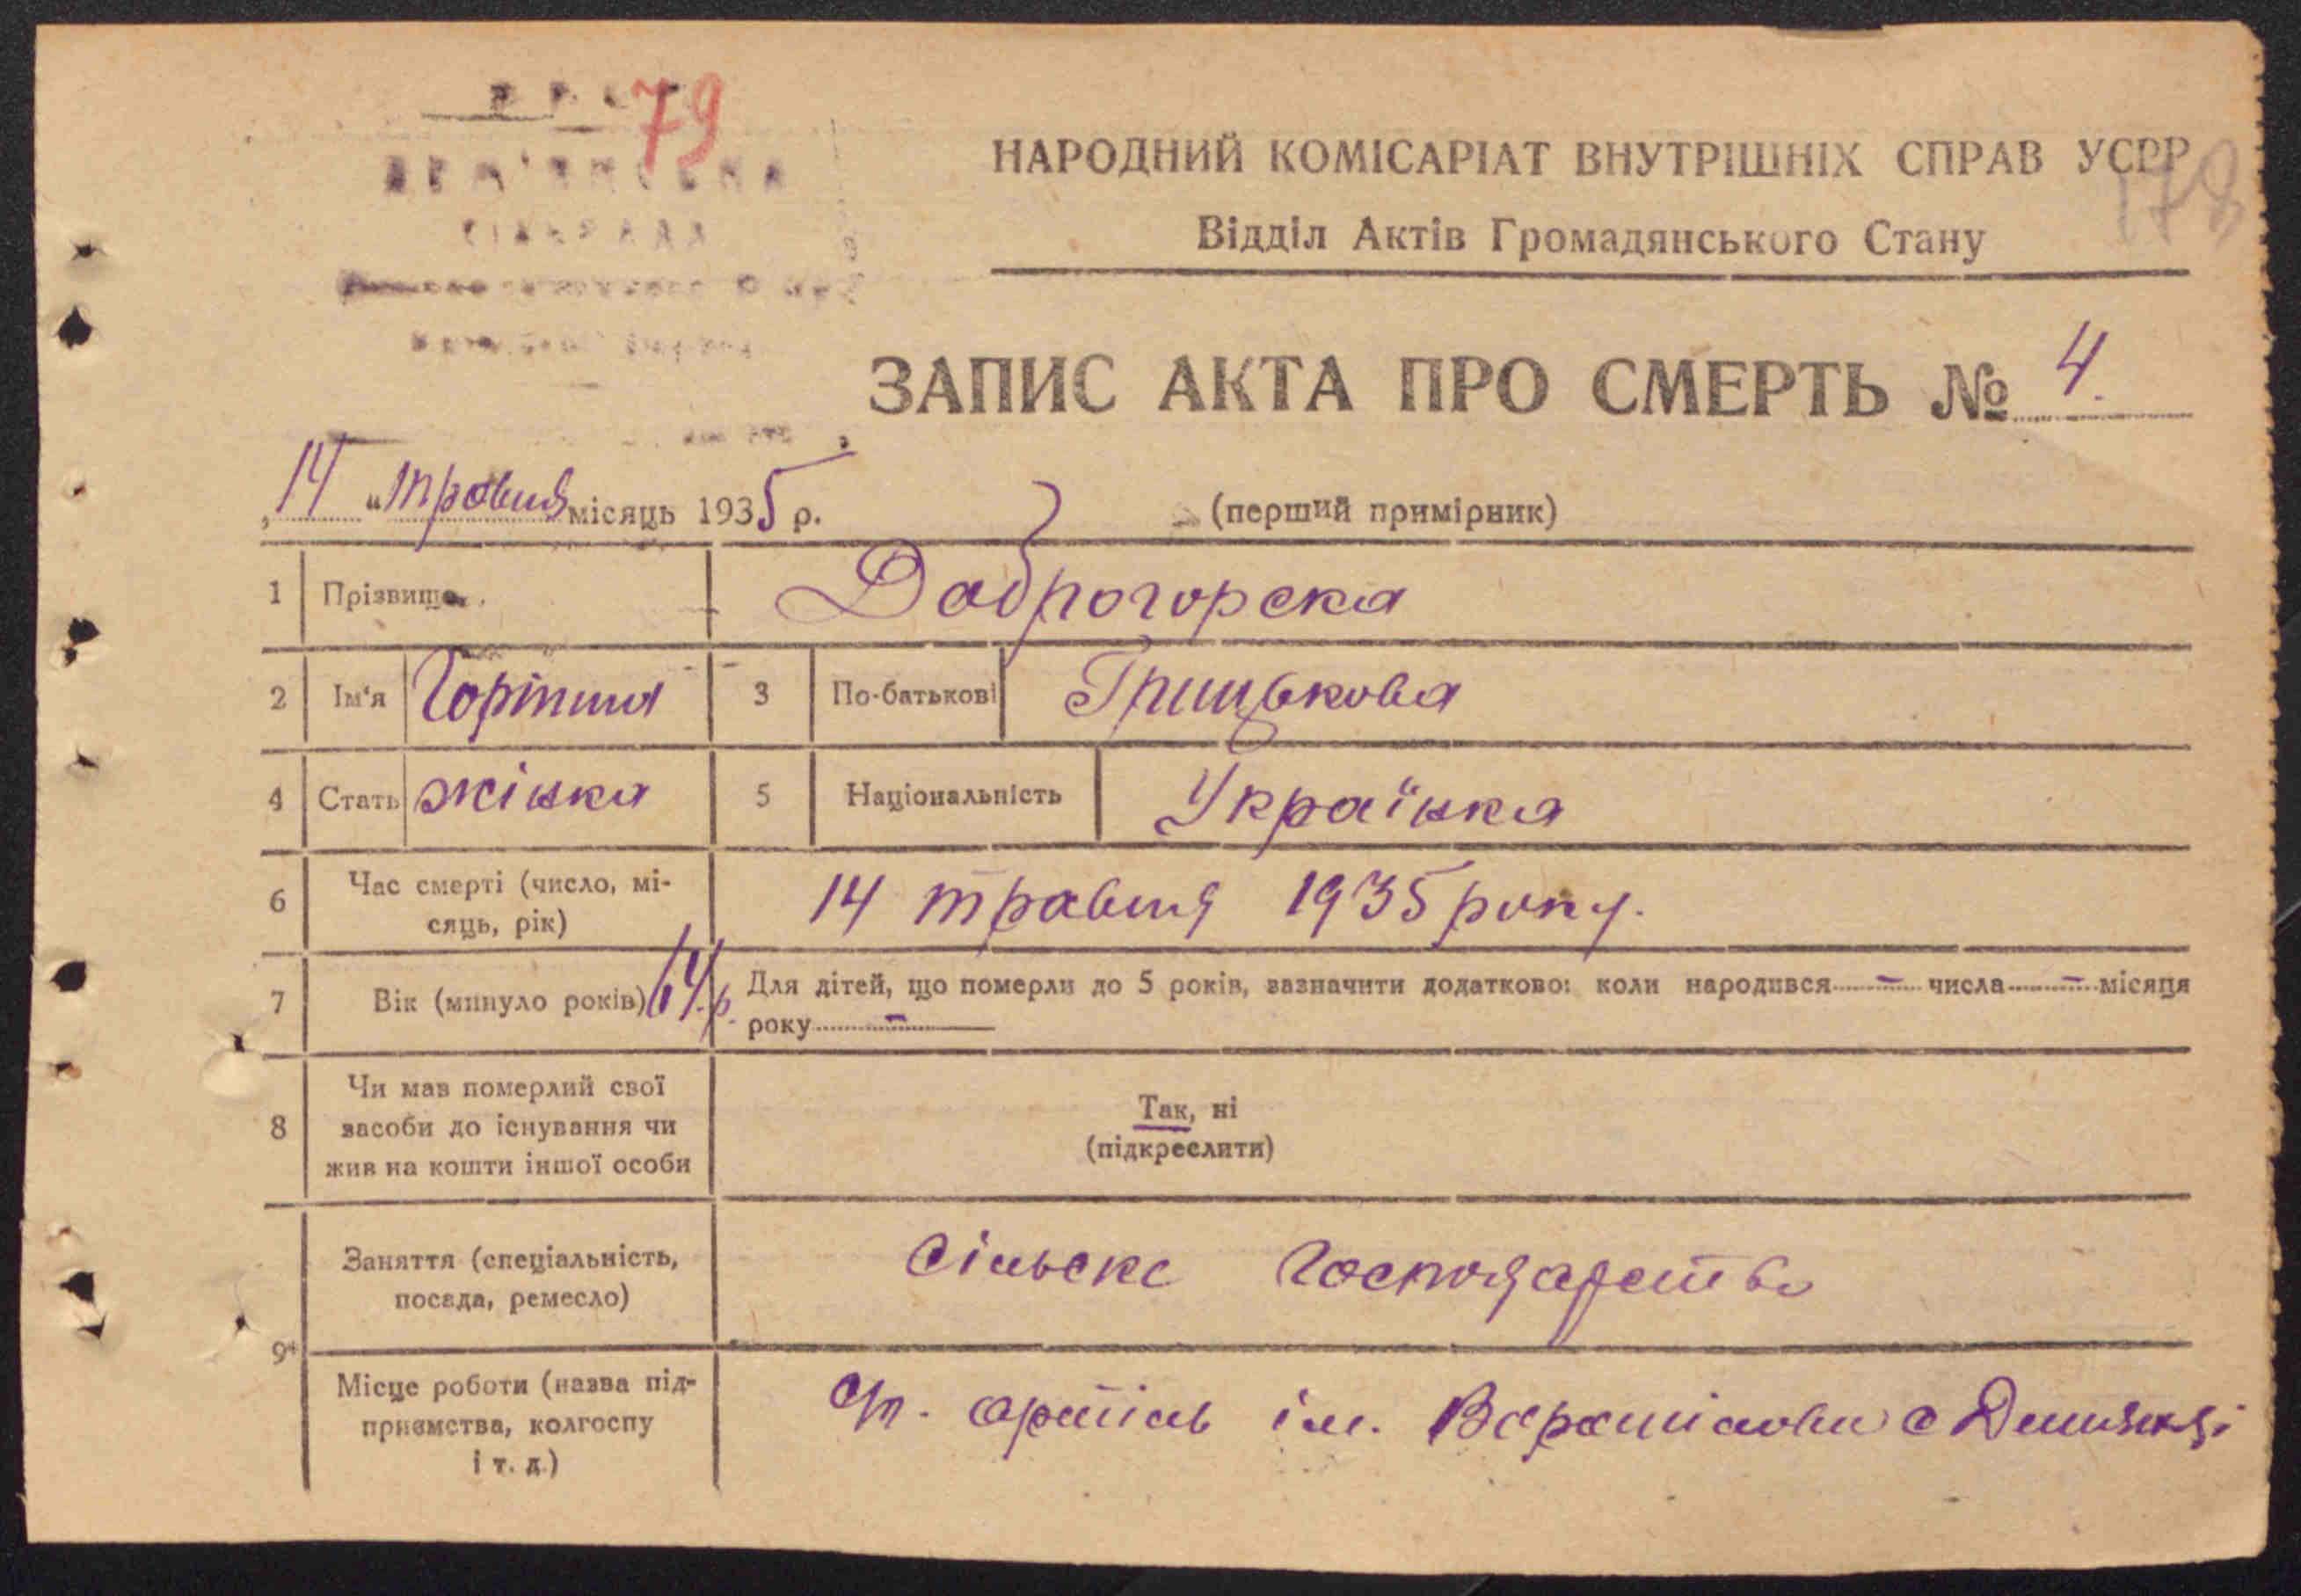 79
СІЛЬРАДА
НАРОДНИЙ КОМІСАРІАТ ВНУТРІШНІХ СПРАВ УСРР
178
Відділ Актів Громадянського Стану
ЗАПИС АКТА ПРО СМЕРТЬ № 4.
„14“ травня місяць 1935 р.
(перший примірник)
1 Прізвище Доброгорска
2 Ім'я Горпина 3 По-батькові Грицькова
4 Стать жінка 5 Національність Українка
6 Час смерті (число, мі-
сяць, рік) 14 травня 1935 року.
7 Вік (минуло років) 64 р. Для дітей, що померли до 5 років, зазначити додатково: коли народився - числа - місяця
року -
8 Чи мав померлий свої
засоби до існування чи
жив на кошти іншої особи
Так, ні
(підкреслити)
9*
Заняття (спеціальність,
посада, ремесло) сільске господарство
Місце роботи (назва під-
приємства, колгоспу
і т. д.)
артіль ім. Ворошілова с